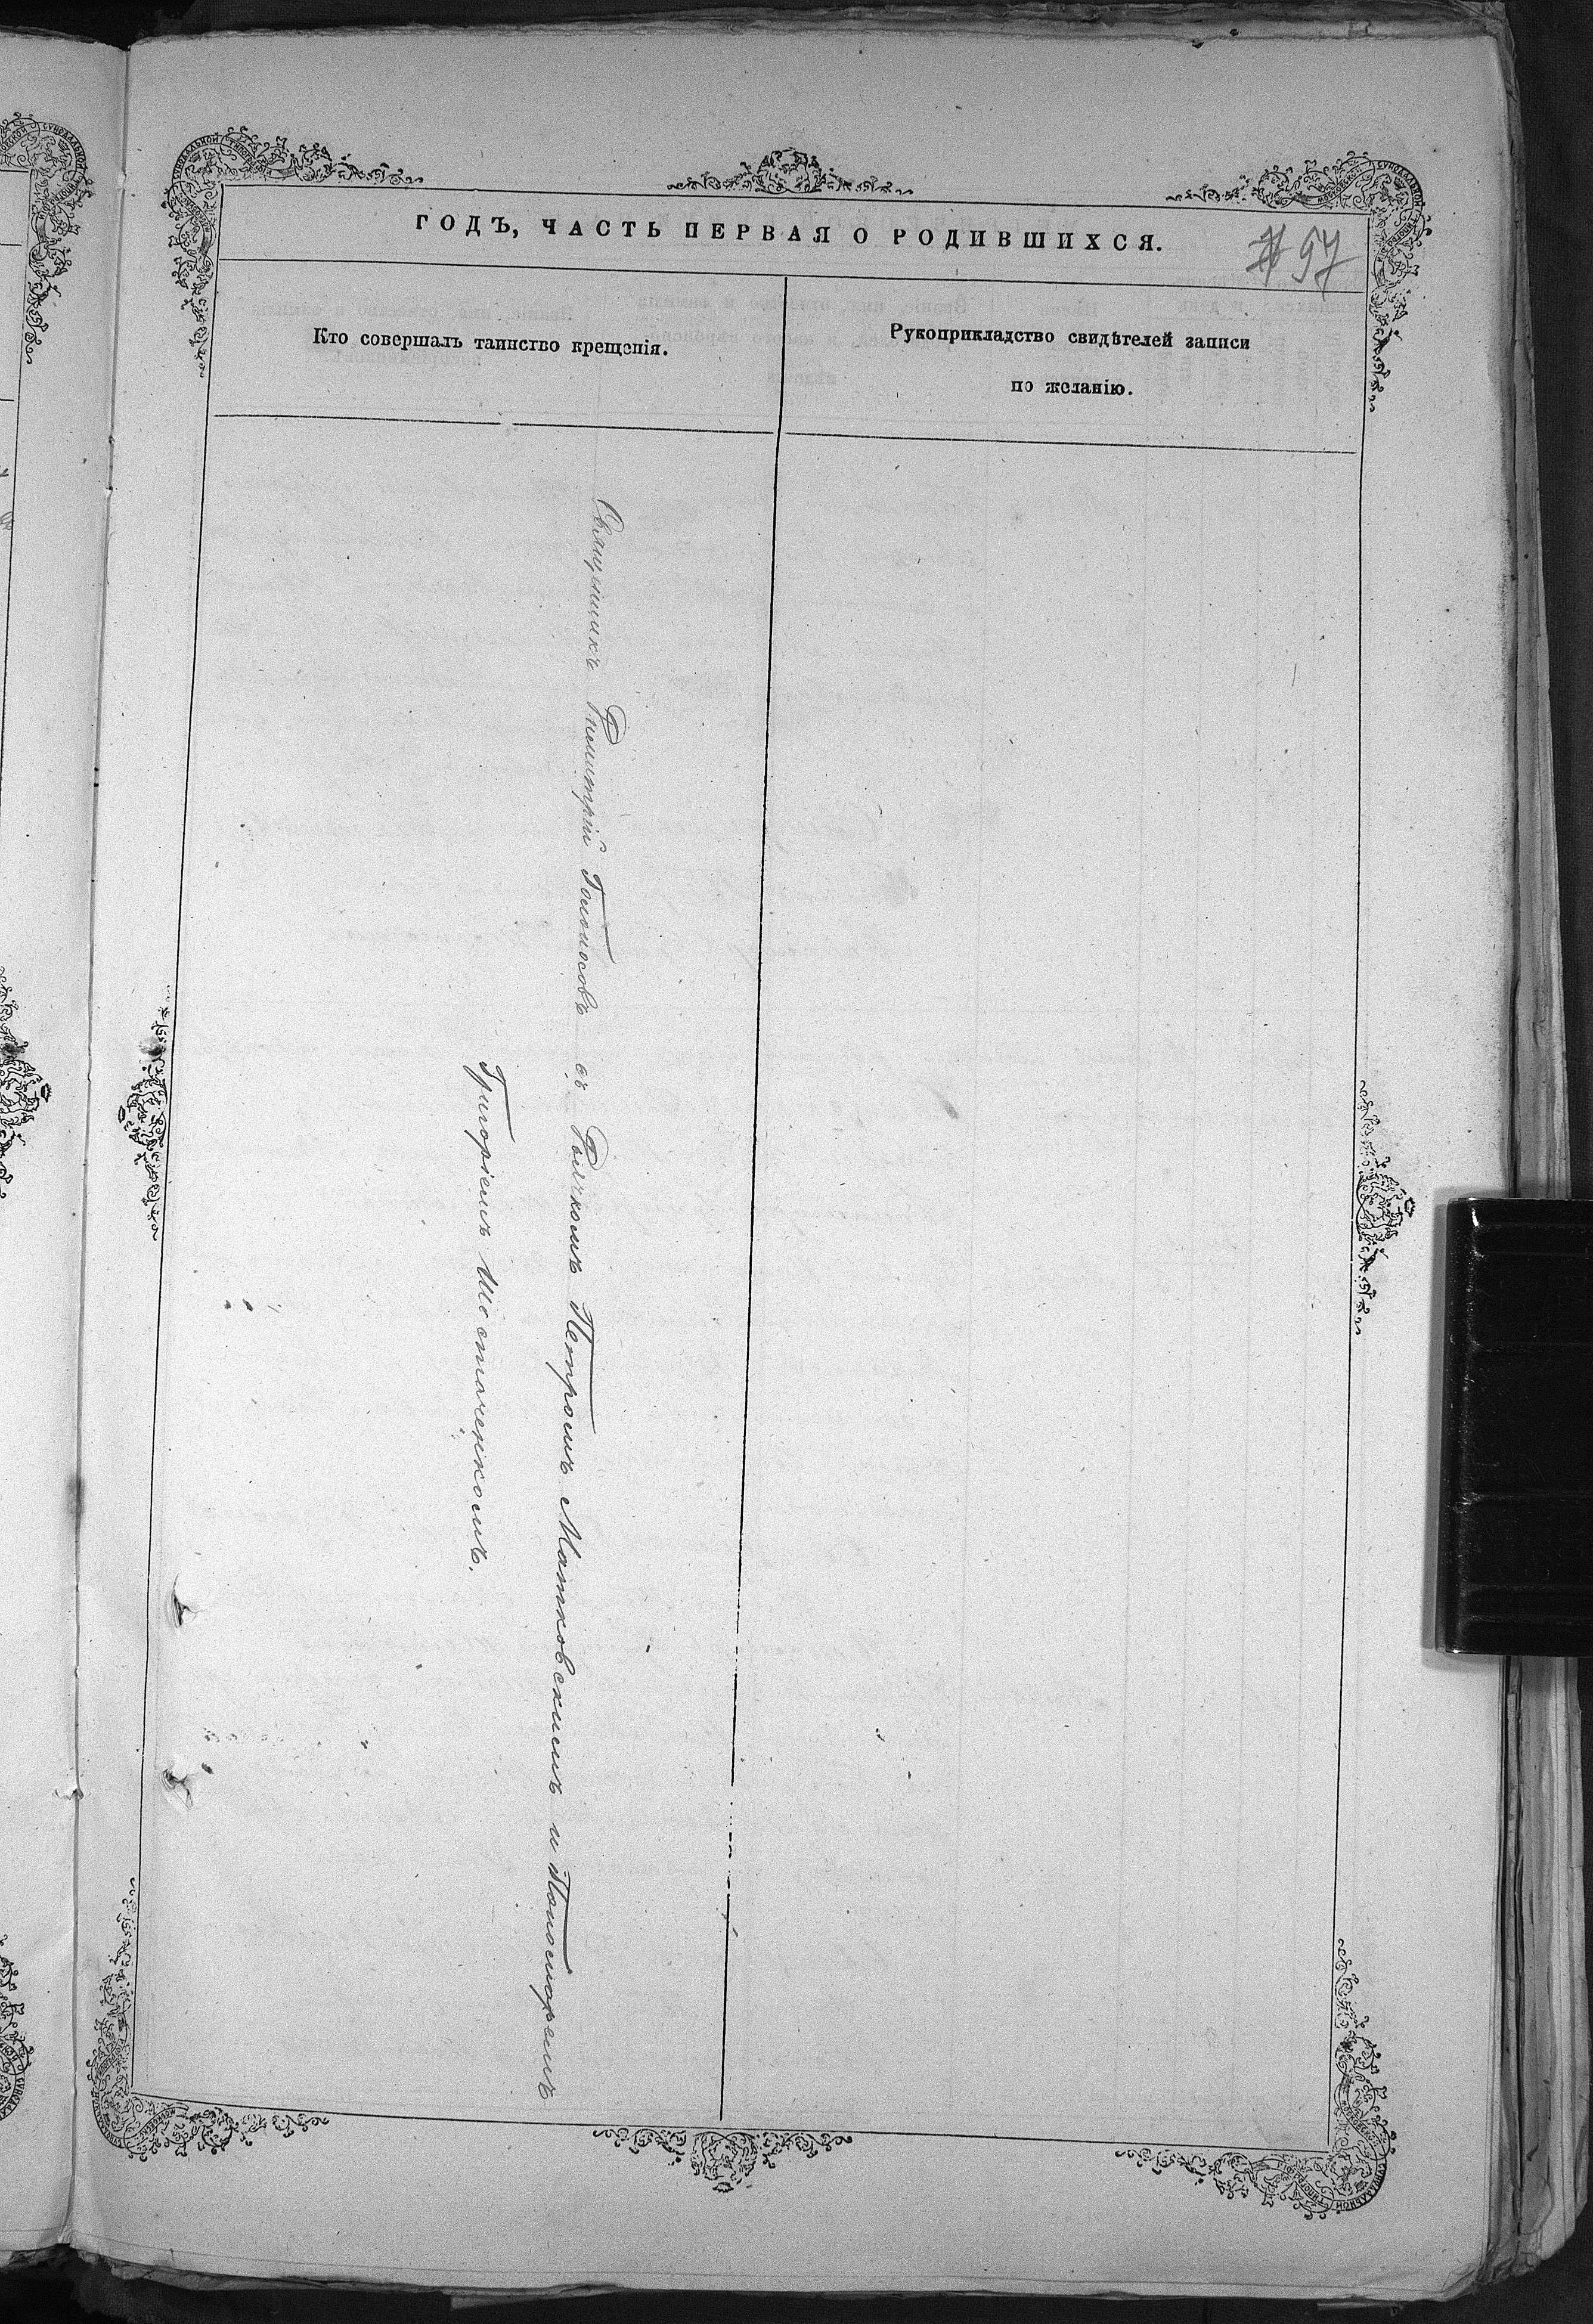 ГОДЪ, ЧАСТЬ ПЕРВАЯ О РОДИВШИХСЯ.
97
Кто совершалъ таинство крещенія.
Рукоприкладство свидѣтелей записи
по желанію.
Священникъ Димитрій Голоносовъ съ Дьячкомъ Петромъ Матковскимъ и Пономаремъ
Григоріемъ Шостаченкомъ.